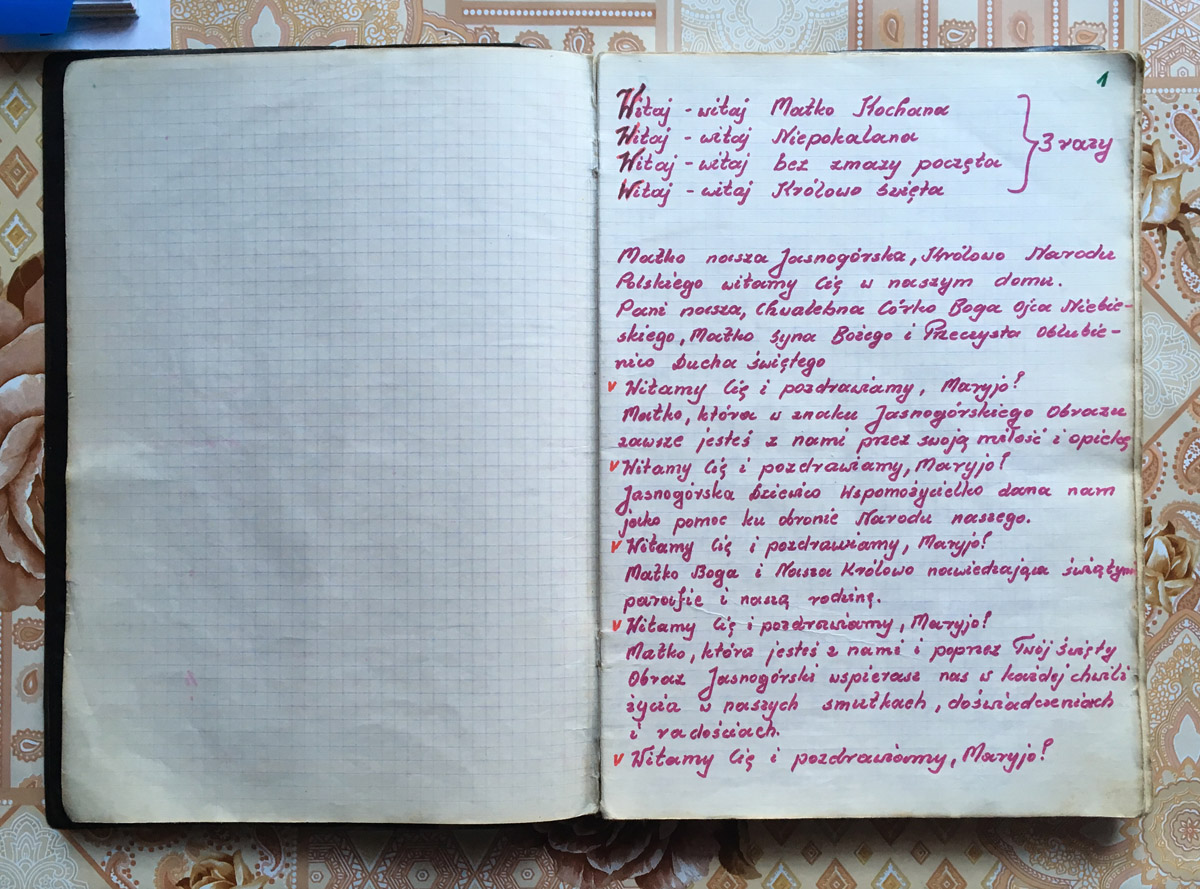 1
Witaj - witaj Matko Kochana
Witaj - witaj Niepokalana
Witaj - witaj bez zmazy poczęta
Witaj - witaj Królowo święta
3 razy
Matko nasza Jasnogórska, Królowo Narodu
Polskiego witamy Cię w naszym domu.
Pani nasza, Chwalebna Córko Boga Ojca Niebie-
skiego, Matko Syna Bożego i Przeczysta Oblubie-
nico Ducha świętego
v Witamy Cię i pozdrawiamy, Maryjo!
Matko, która w znaku Jasnogórskiego Obrazu
zawsze jesteś z nami przez swoją miłość i opiekę
v Witamy Cię i pozdrawiamy, Maryjo!
Jasnogórska Dziewico Wspomożycielko dana nam
jako pomoc ku obronie Narodu naszego.
v Witamy Cię i pozdrawiamy, Maryjo!
Matko Boga i Nasza Królowo nawiedzająca świątyni
parafie i naszą rodzinę.
v Witamy Cię i pozdrawiamy, Maryjo!
Matko, która jesteś z nami i poprzez Twój święty
Obraz Jasnogórski wspierasz nas w każdej chwili
życia w naszych smutkach, doświadczeniach
i radościach.
v Witamy Cię i pozdrawiamy, Maryjo!